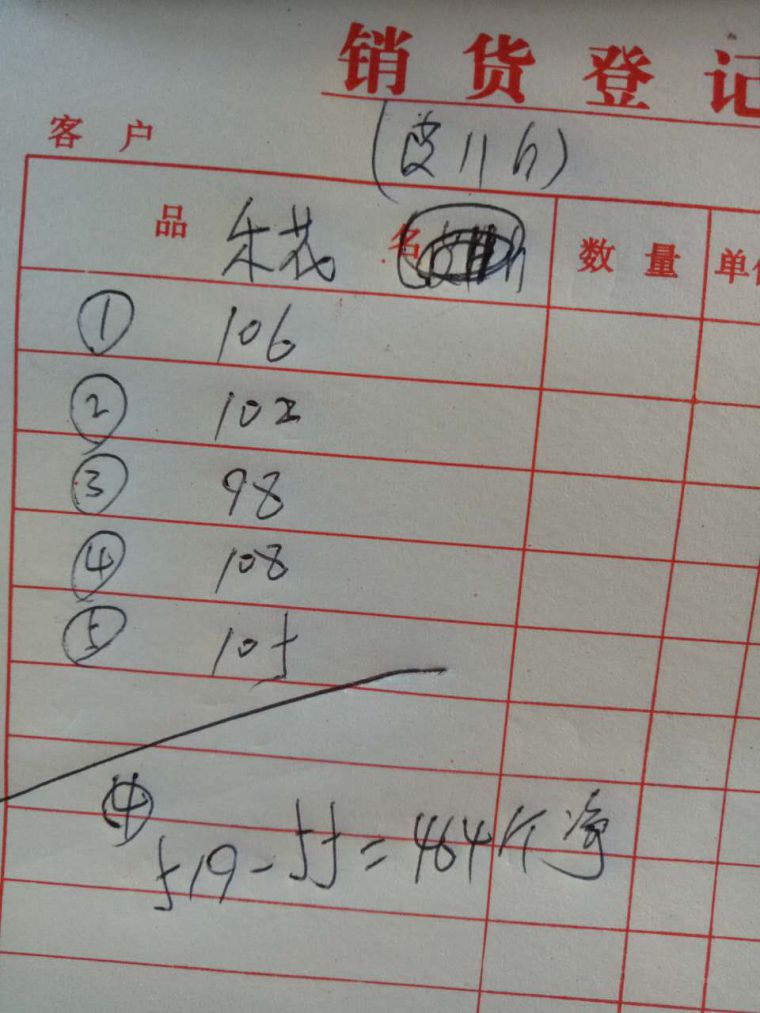 销货登记
客户
(皮11斤)
品名 朵花 数量 单价
① 106
② 102
③ 98
④ 108
⑤ 105
④
519-55=464个净